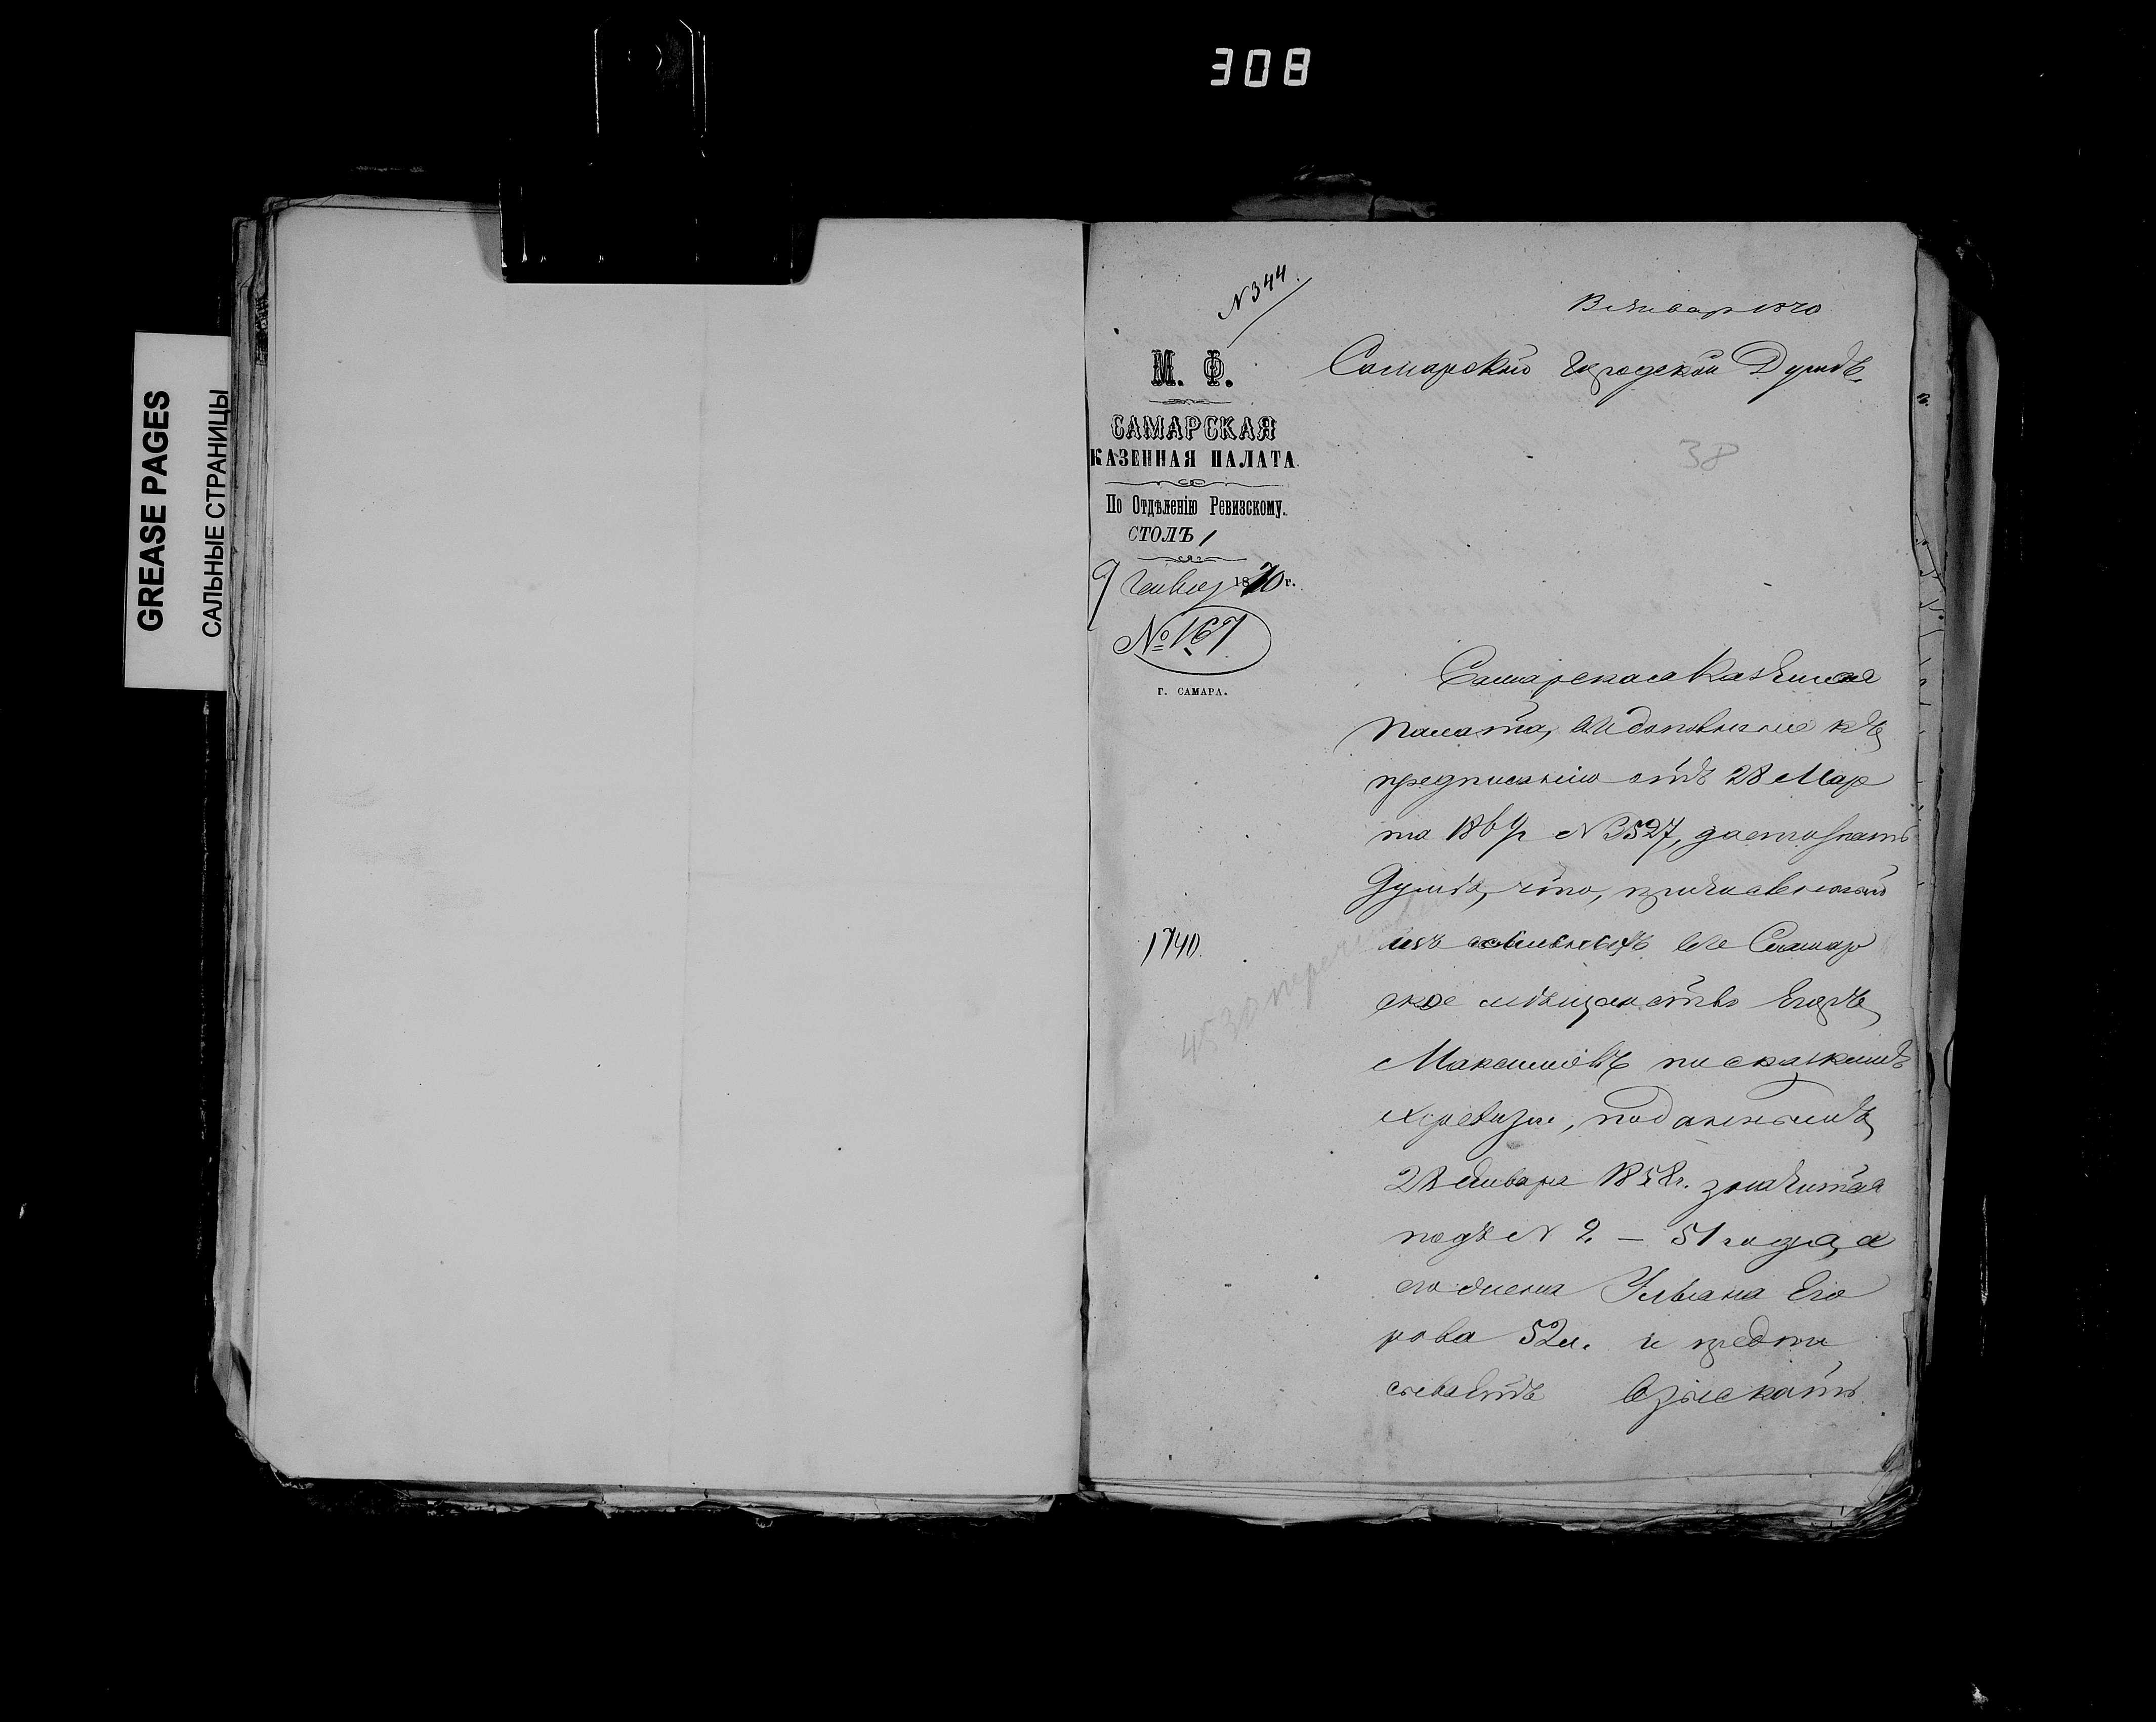 308
GREASE PAGES
САЛЬНЫЕ СТРАНИЦЫ
N 344.
Январ 1870
М. Ф.
САМАРСКАЯ
КАЗЕННАЯ ПАЛАТА.
По Отдѣленію Ревизскому.
СТОЛЪ 1
9 Генвар 1870 г.
№ 167
Г. САМАРА.
Самарской Городской Думѣ.
38
Самарская Казенная
Палата, въ дополненіе къ
предписанію отъ 28 Мар
та 1869 г N 3527, даетъ знать
Думѣ, что, причисленный
1740.
изъ ссыльныхъ въ Самар
ское мѣщанство Егоръ
Максимовъ по сказкамъ
X ревизіи, поданнымъ
28 Января 1858 г. значится
подъ N 2 – 51 года, а
его жена Ульяна Его
рова 52 л. и предпи
сываетъ взыскать